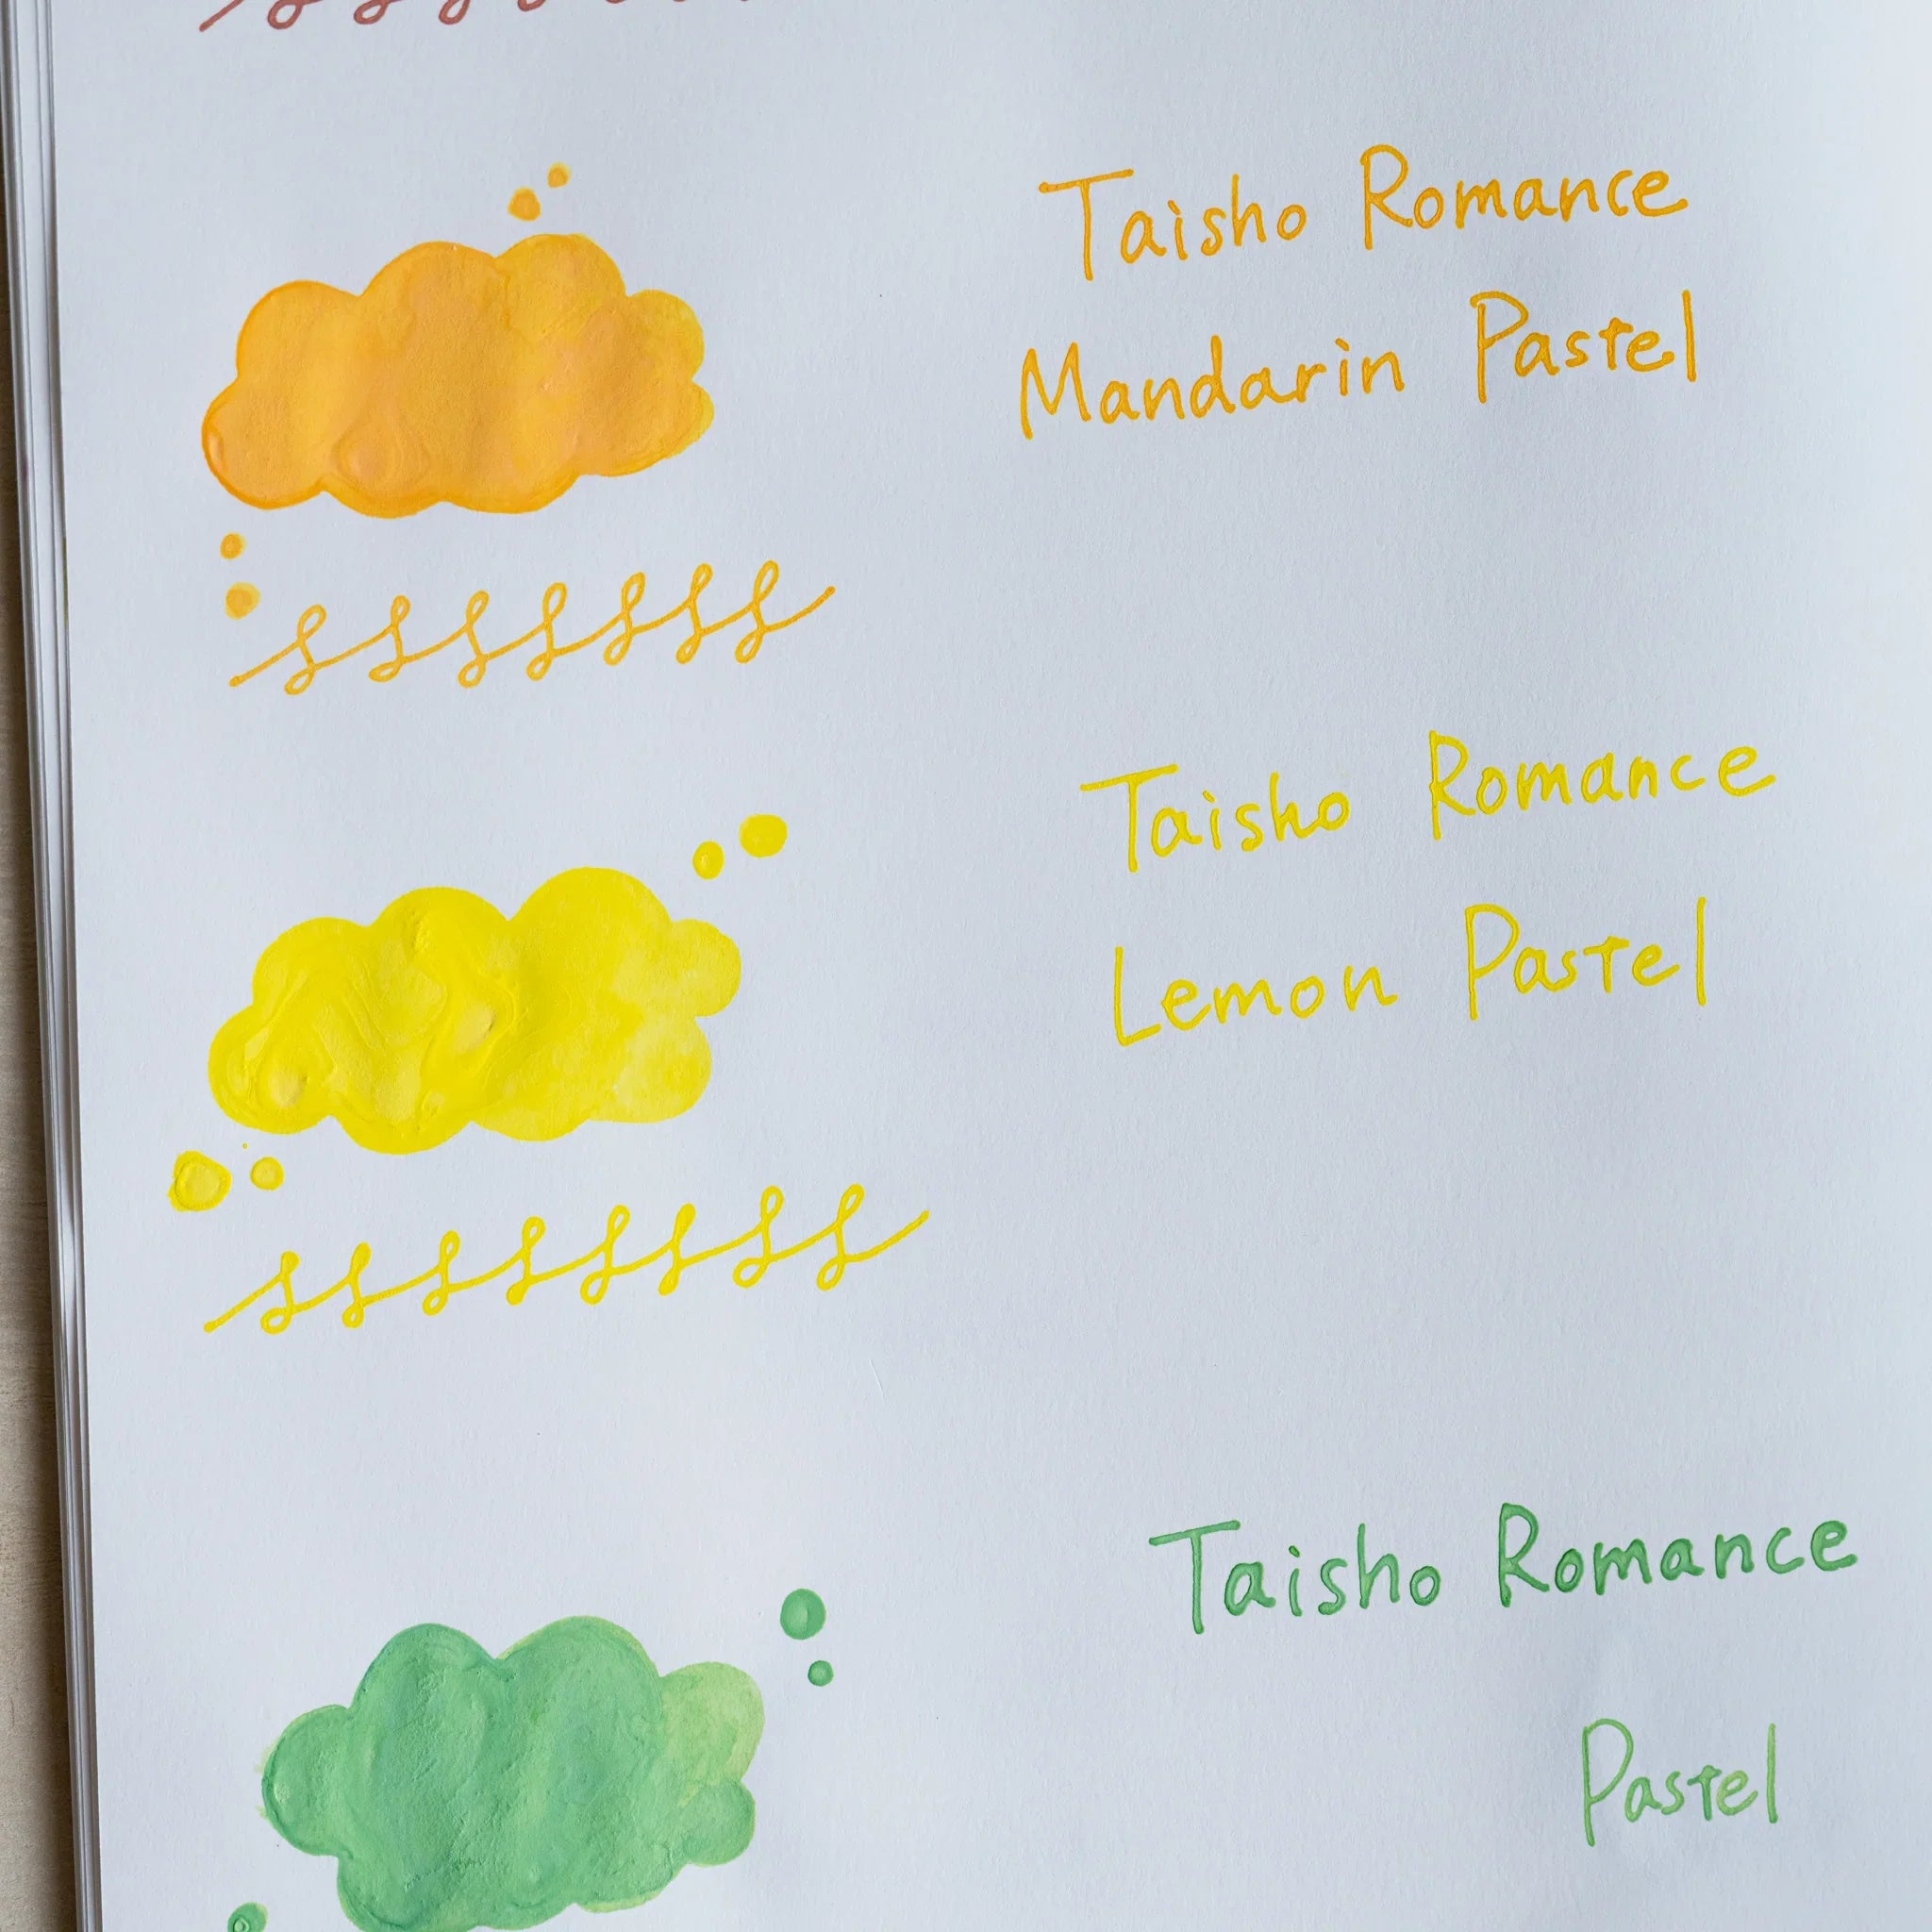 Taisho Romance
Mandarin Pastel
Taisho Romance
Lemon Pastel
Taisho Romance
Pastel